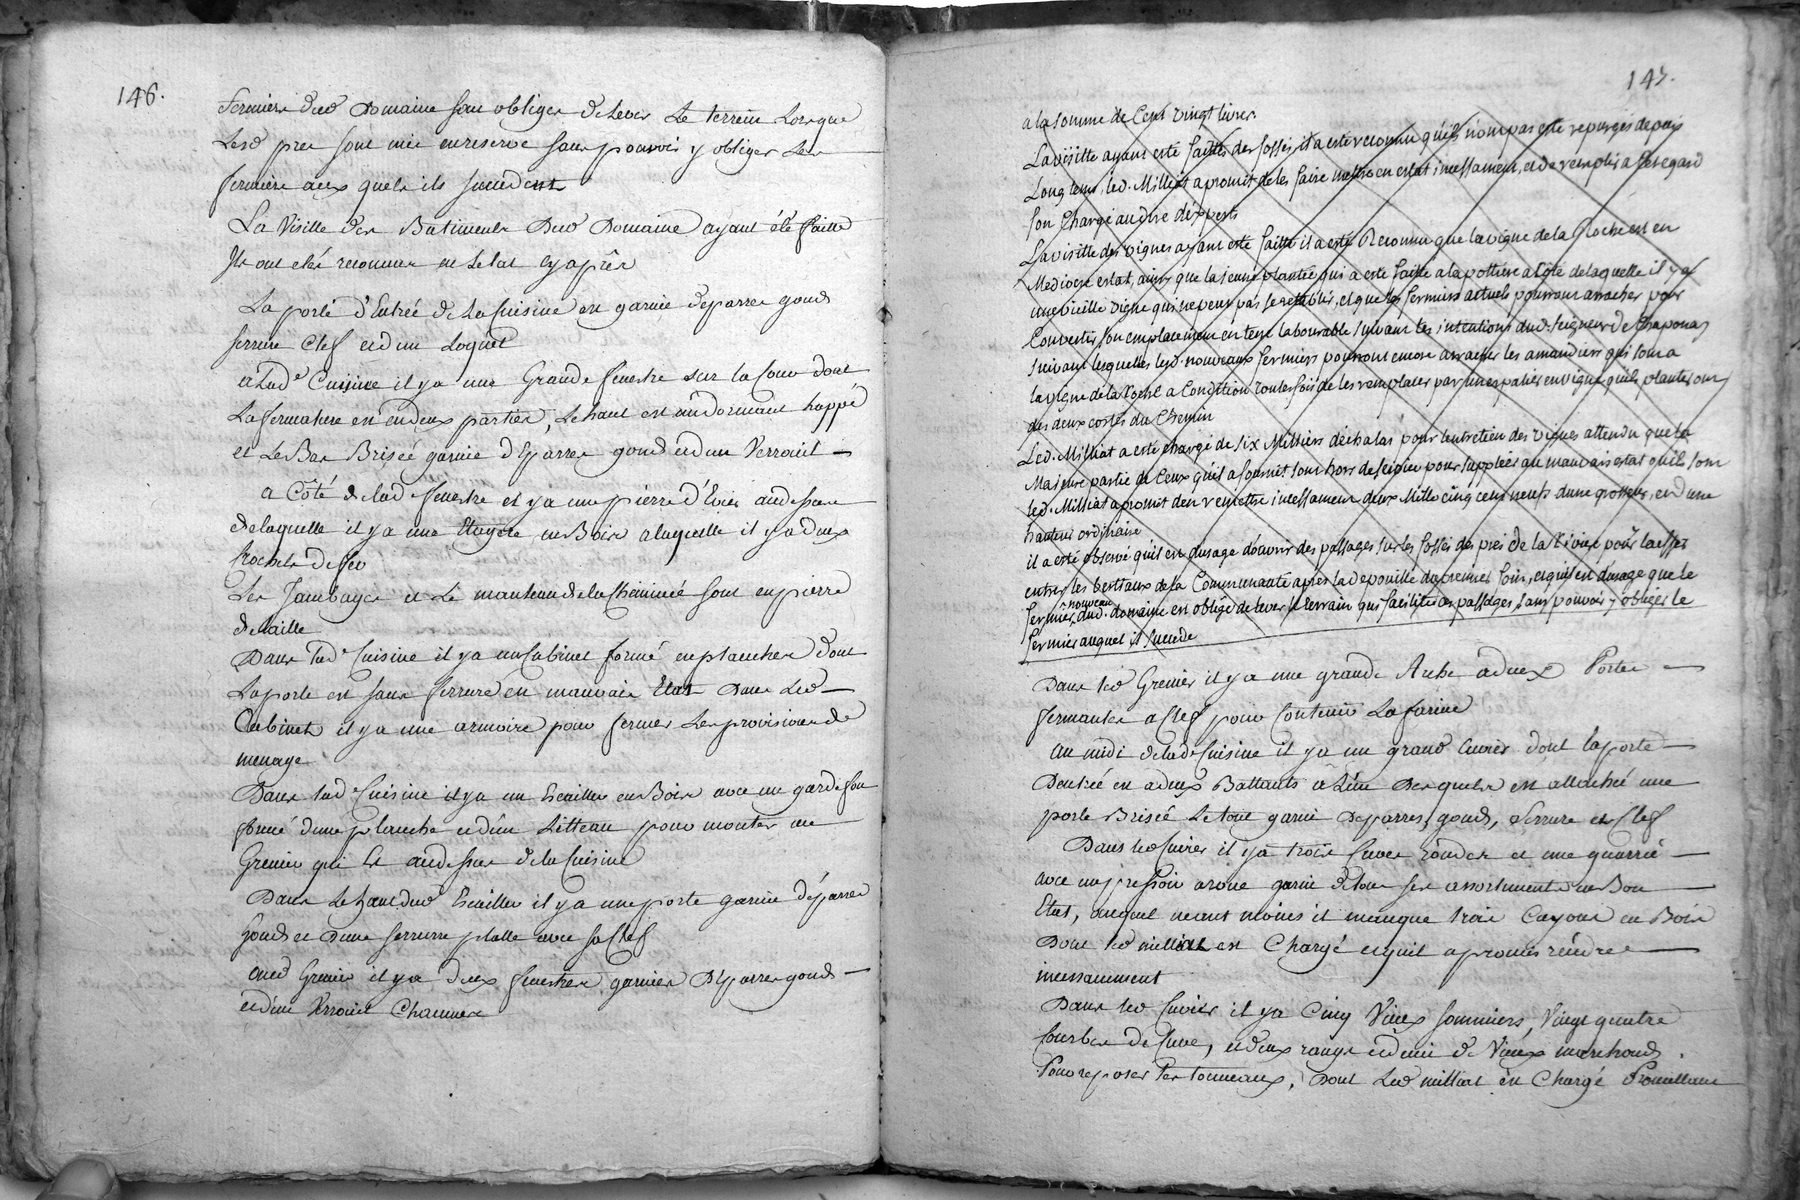 146.
fermiers dud Domaine sont obligés de lever Le terrein Lorsque
Lesd prez sont mis en reserve sans pouvoir y obliger Les
fermiers aux quels ils succedent
La Visitte des Batiments Dud Domaine ayant été faitte
Ils ont etés reconnus en L'etat cy après
La porte d'Entrée de La Cuisine est garnie d'eparres gonds
serrure Clef et d'un Loquet
a Lad.e Cuisine il y a une Grande fenestre sur la Cour dont
La fermeture est en deux parties, Le haut est un dormant happé
et Le Bas Brisée garnie d'Eparres gonds et d'un Verrouil
a Côté de lad.e fenestre il y a une pierre d'Evier au dessus
de laquelle il y a une Etagere en Bois a laquelle il y a deux
Crochets de fer
Les Jambages et Le manteau de la Cheminée sont en pierre
de taille
Dans Lad.e Cuisine il y a un Cabinet formé en planches dont
La porte est sans serrure en mauvais Etat Dans Led
Cabinet il y a une armoire pour fermer Les provisions de
menage
Dans lad.e Cuisine il y a un Escallier en Bois avec un garde fou
formé d'une planche et d'un Litteau pour monter au
Grenier qui Est au dessus de la Cuisine
Dans Le haut dud Escallier il y a une porte garnie d'éparres
Gonds et D'une serrure platte avec sa Clef
aud Grenier il y a deux fenestres garnies D'éparres gonds
et d'un Verrouil Chacunes
147.
a la somme de Cent vingt livres
La visitte ayant esté faitte des fossés il a esté reconnu qu'ils n'ont pas esté repurgés depuis
Longtems, led. Milliat a promit de les faire mettre en estat incessament, et de remplir a cet egard
son Charge au dire d'experts
La visitte des vignes ayant esté faitte il a esté Reconnu que la vigne de la Roche est en
Mediocre estat, ainsy que la jeune plantée qui a esté faitte a la pottiere a Côté de laquelle il y a
une vieille vigne qui ne peut pas se retablir, et que les fermiers actuels pourront arracher pour
Convertir son emplacement en terre labourable suivant les intentions dud. seigneur de Chaponay
suivant lesquelles lesd. nouveaux fermiers pourront encore arracher les amandiers qui sont a
la vigne de la Roche a Condition toutesfois de les remplacer par un espalier en vigne qu'ils planteront
des deux costés du Chemin
Led. Milliat a esté chargé de six Milliers d'echalas pour l'entretien des vignes attendu que la
Majeure partie de Ceux qu'il a fournit sont hors de service pour suppléer au mauvais estat ou ils sont
led. Milliat a promit d'en remettre incessament deux Mille cinq cens neufs d'une grosseur, et d'une
hauteur ordinaire
il a esté observé qu'il est d'usage d'ouvrir des passages sur les fossés des prés de la Riviere pour laisser
entrer les bestiaux de la Communauté après la depouille du premier foin, et qu'il est d'usage que le
nouveau
fermier dud. domaine est obligé de lever le terrain qui facilite ces passages, sans pouvoir y obliger le
fermier auquel il succede
Dans led Grenier il y a une grande Arche a deux Portes
fermantes a Clef pour Contenir La farine
au midi de lad.e Cuisine il y a un grand Cuvier dont la porte
D'entrée est a deux Battants a L'un Desquels est attachée une
porte Brisée Le tout garni D'eparres, gonds, Serrure et Clef
Dans led Cuvier il y a trois Cuves rondes et une quarrée
avec un pressoir a roue garni de tous ses assortiments en Bon
Etat, auquel neant moins il manque trois Cayons en Bois
Dont led milliat est Chargé et qu'il a promis rendre
incessamment
Dans led Cuvier il y a Cinq Vieux sommiers, Vingt quatre
Courbes de Cuve, et deux rangs et demi de Vieux marchonds
Pour reposer Les tonneaux, Dont Led milliat est Chargé Promettant